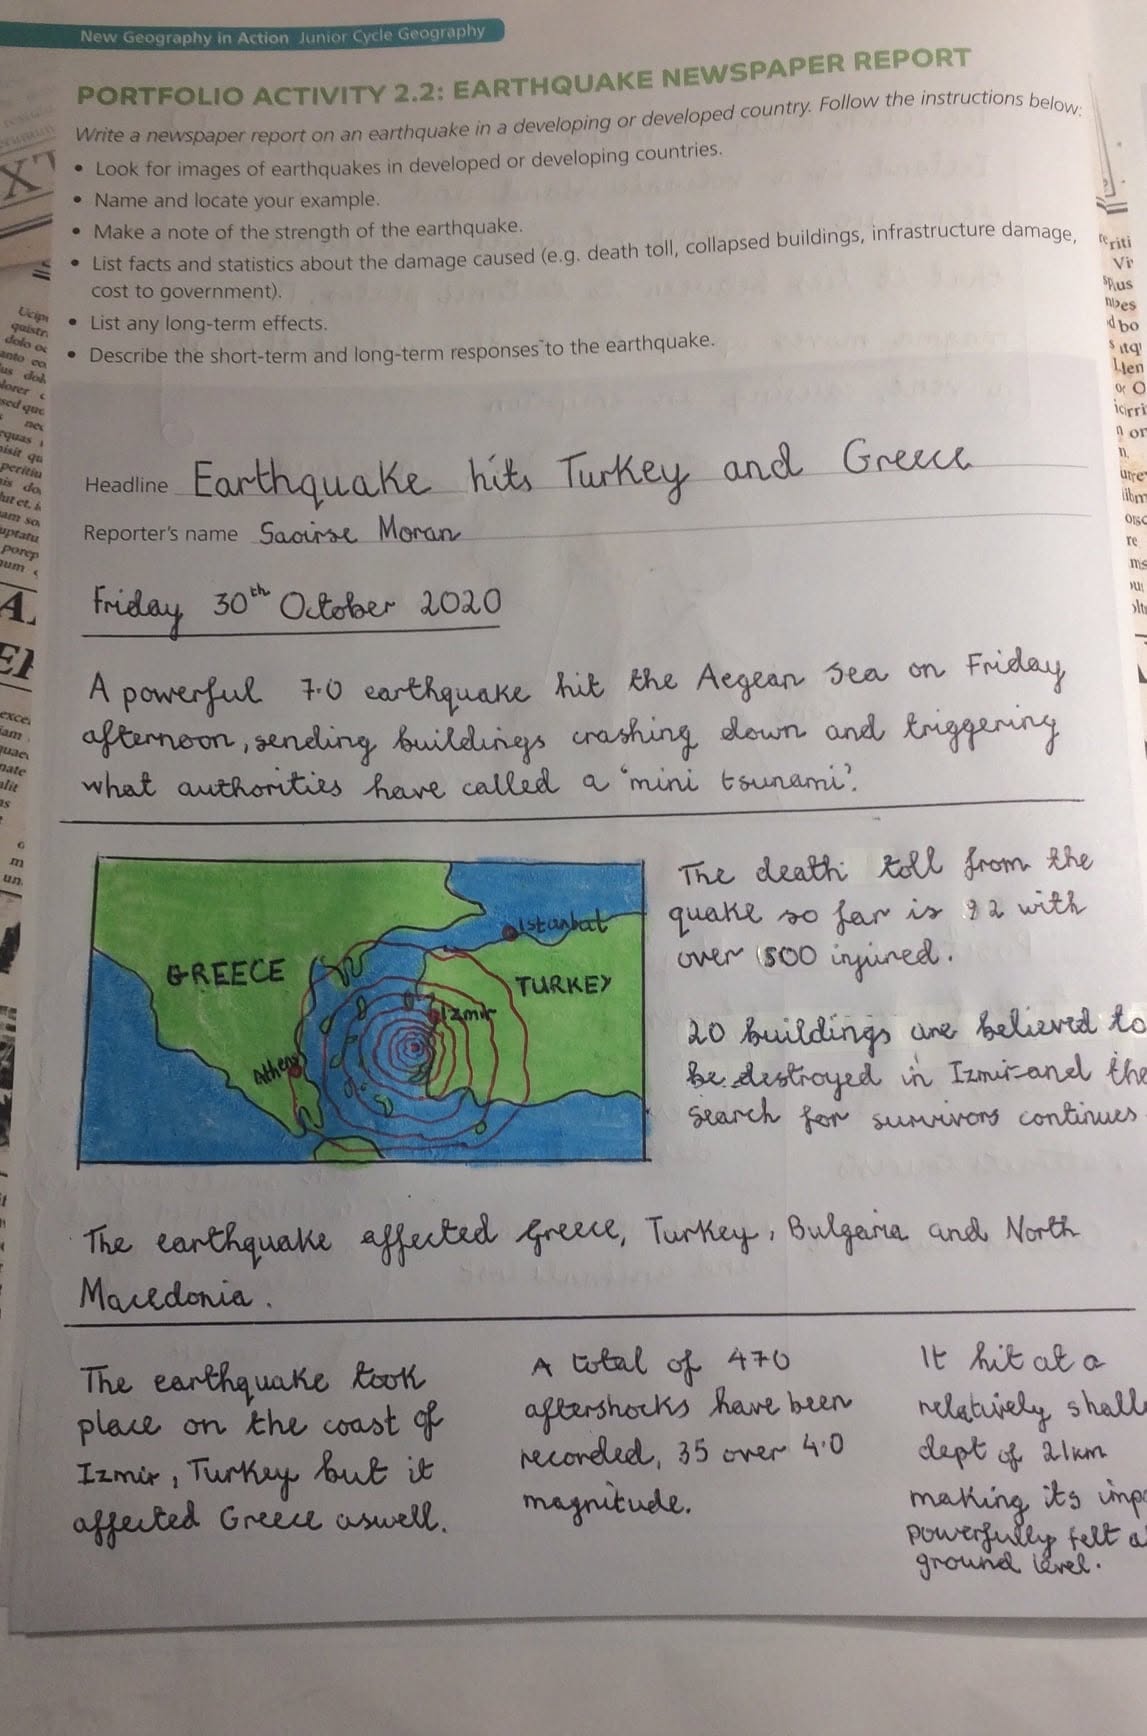 New Geography in Action Junior Cycle Geography
PORTFOLIO ACTIVITY 2.2: EARTHQUAKE NEWSPAPER REPORT
Write a newspaper report on an earthquake in a developing or developed country. Follow the instructions below:
• Look for images of earthquakes in developed or developing countries.
• Name and locate your example.
• Make a note of the strength of the earthquake.
• List facts and statistics about the damage caused (e.g. death toll, collapsed buildings, infrastructure damage,
cost to government).
• List any long-term effects.
• Describe the short-term and long-term responses to the earthquake.
Headline Earthquake hits Turkey and Greece
Reporter's name Saoirse Moran
Friday 30th October 2020
A powerful 7.0 earthquake hit the Aegean Sea on Friday
afternoon, sending buildings crashing down and triggering
what authorities have called a 'mini tsunami'.
GREECE
Istanbat
TURKEY
Izmir
Athens
The death toll from the
quake so far is 92 with
over 500 injured.
20 buildings are believed to
be destroyed in Izmir and the
search for survivors continues
The earthquake affected Greece, Turkey, Bulgaria and North
Macedonia.
The earthquake took
place on the coast of
Izmir, Turkey but it
affected Greece aswell.
A total of 470
aftershocks have been
recorded, 35 over 4.0
magnitude.
It hit at a
relatively shall
dept of 21km
making its imp
powerfully felt a
ground level.